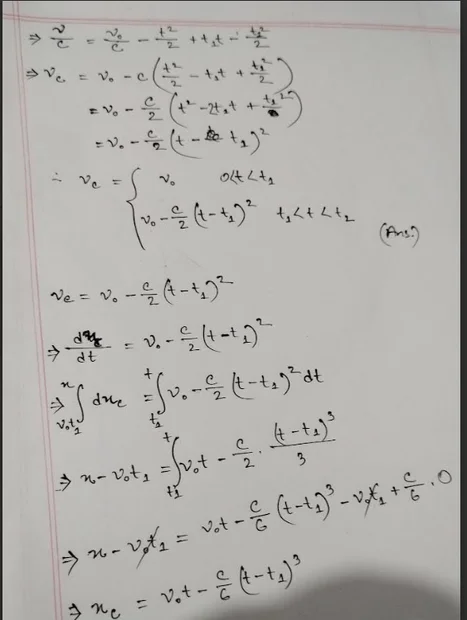 ⇒ v/c = v₀/c - t²/2 + t₁t - t₁²/2
⇒ v_c = v₀ - c(t²/2 - t₁t + t₁²/2)
= v₀ - c/2 (t² - 2t₁t + t₁²)
= v₀ - c/2 (t - t₁)²
∴ v_c = { v₀ 0<t<t₁
v₀ - c/2 (t - t₁)² t₁<t<t₂
(Ans.)
v_c = v₀ - c/2 (t - t₁)²
⇒ dx/dt = v₀ - c/2 (t - t₁)²
⇒ ∫_{v₀t₁}^{x} dx_c = ∫_{t₁}^{t} v₀ - c/2 (t - t₁)² dt
⇒ x - v₀t₁ = ∫_{t₁}^{t} v₀t - c/2 · (t - t₁)³/3
⇒ x - v₀t₁ = v₀t - c/6 (t - t₁)³ - v₀t₁ + c/6 · 0
⇒ x_c = v₀t - c/6 (t - t₁)³